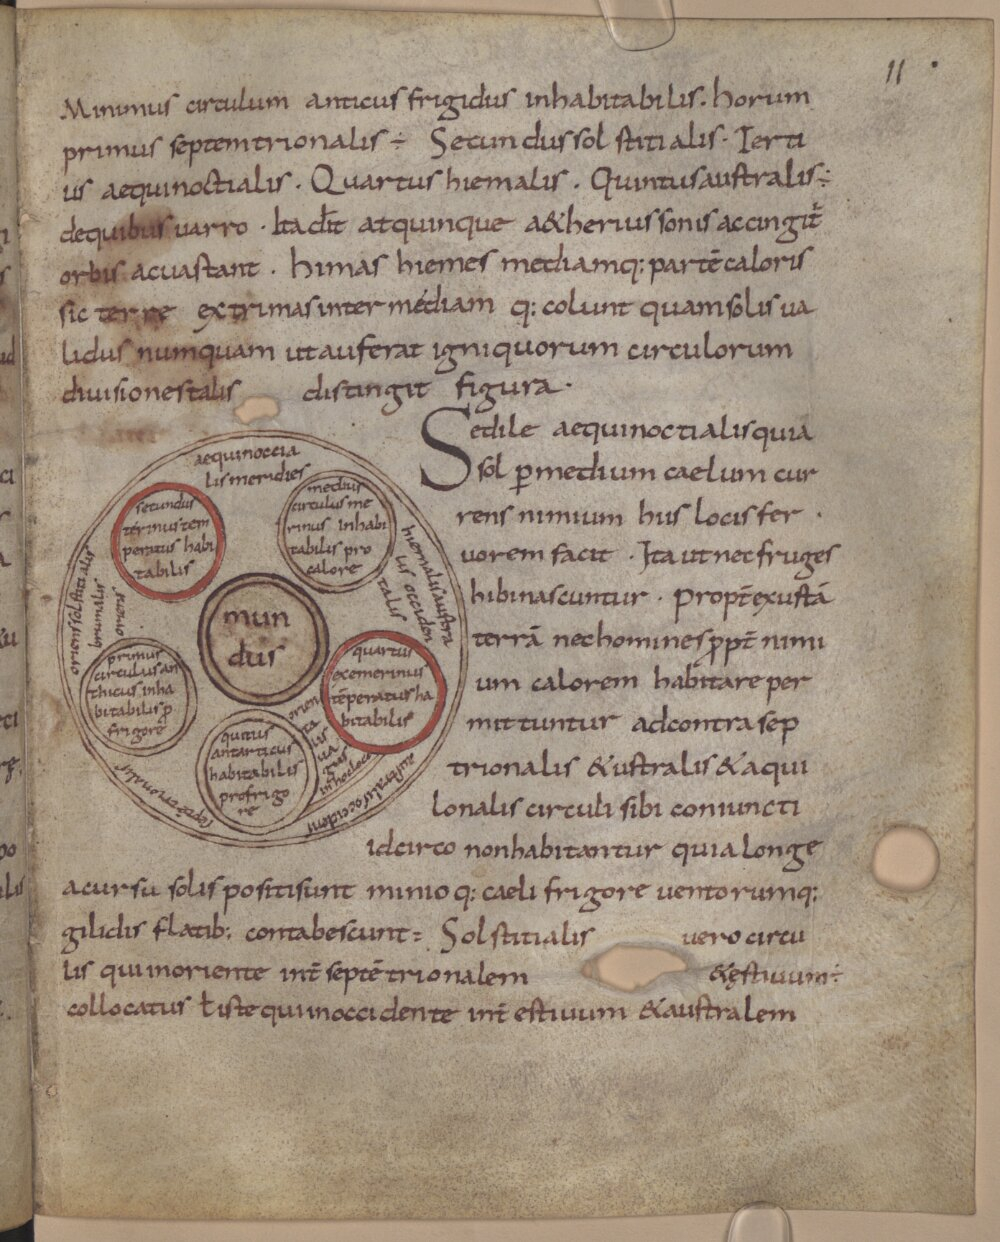 11
Minimus circulum anticus frigidus inhabitabilis. horum
primus septemtrionalis ÷ Secundus solstitialis. Terti
us aequinoctialis. Quartus hiemalis. Quintus australis
dequibus varro. Ita dic̄t atquinque a&herius sonis accingit̄
orbis acuastant. himas hiemes mediamq: partē caloris
sic terre extrimas inter médiam q: colunt quam solis va
lidus numquam ut auferat igni quorum circulorum
divisiones talis distingit figura.
Sed ile aequinoctialis quia
sol p̱ medium caelum cur
rens nimium hus locis fer.
uorem facit. Ita ut nec fruges
hibi nascuntur. propt̄ exustā
terrā nec homines p̱pt̄ nimi
um calorem habitare per
mittuntur ad contra sep
trionalis &ustralis &aqui
lonalis circuli sibi coniuncti
idcirco non habitantur quia longe
a cursu solis positi sunt minio q: caeli frigore ventorumq:
gilidis flatib: contabescunt Solstitialis vero circu
lis qui inoriente int̄ septētrionalem &estivum
collocatus t iste qui inoccidente int̄ estivum &australem
aequinoccia
lis meridies
secundus
terinus tem
peratus habi
tabilis
medius
circulus me
rinus inhabi
tabilis pro
calore
hiemalis austra
lis occiden
talis
oriens solstitialis
brumalis
oriens
mun
dus
primus
circulus an
thicus inha
bitabilis p̱
frigore
quartus
excemerinus
tēperatus ha
bitabilis
quitus
antarticus
habitabilis
pro frigo
re
orien
ta
lis
septētrionalis
australis occidens